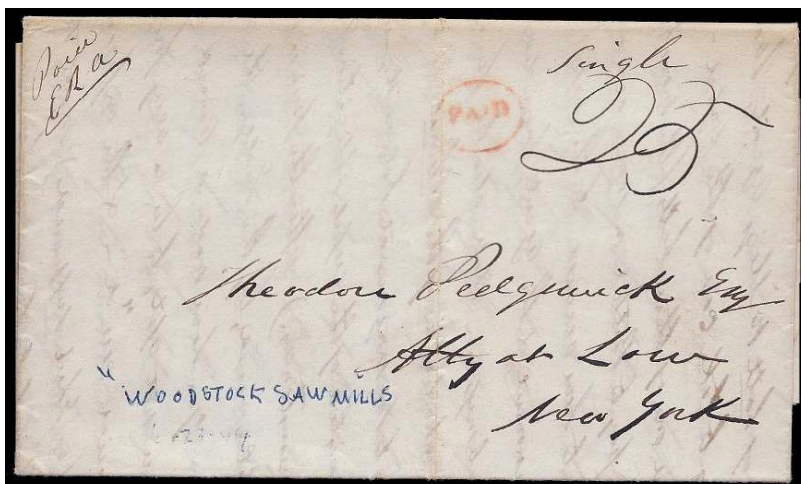 Paid
ERA
Single
25
PAID
Theodore Sedgwick Esq
Atty at Law
New York
"WOODSTOCK SAWMILLS